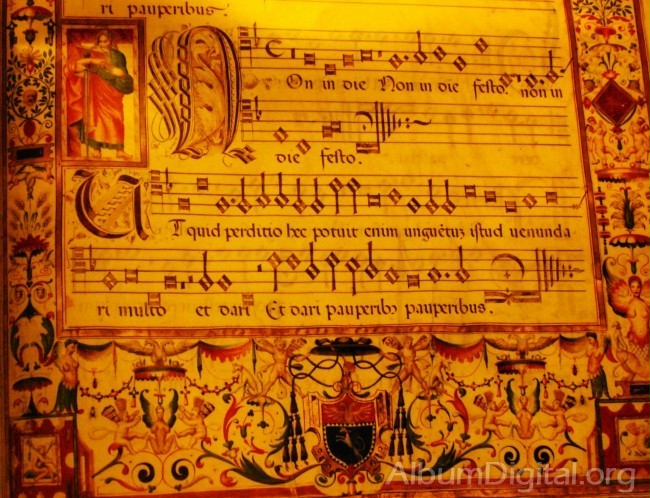 ri pauperibus.
Non in die Non in die festo. non in
die festo.
Ut quid perditio hec potuit enim unguētuz istud uenunda
ri multo et dari Et dari pauperibꝫ pauperibus.
AlbumDigital.org